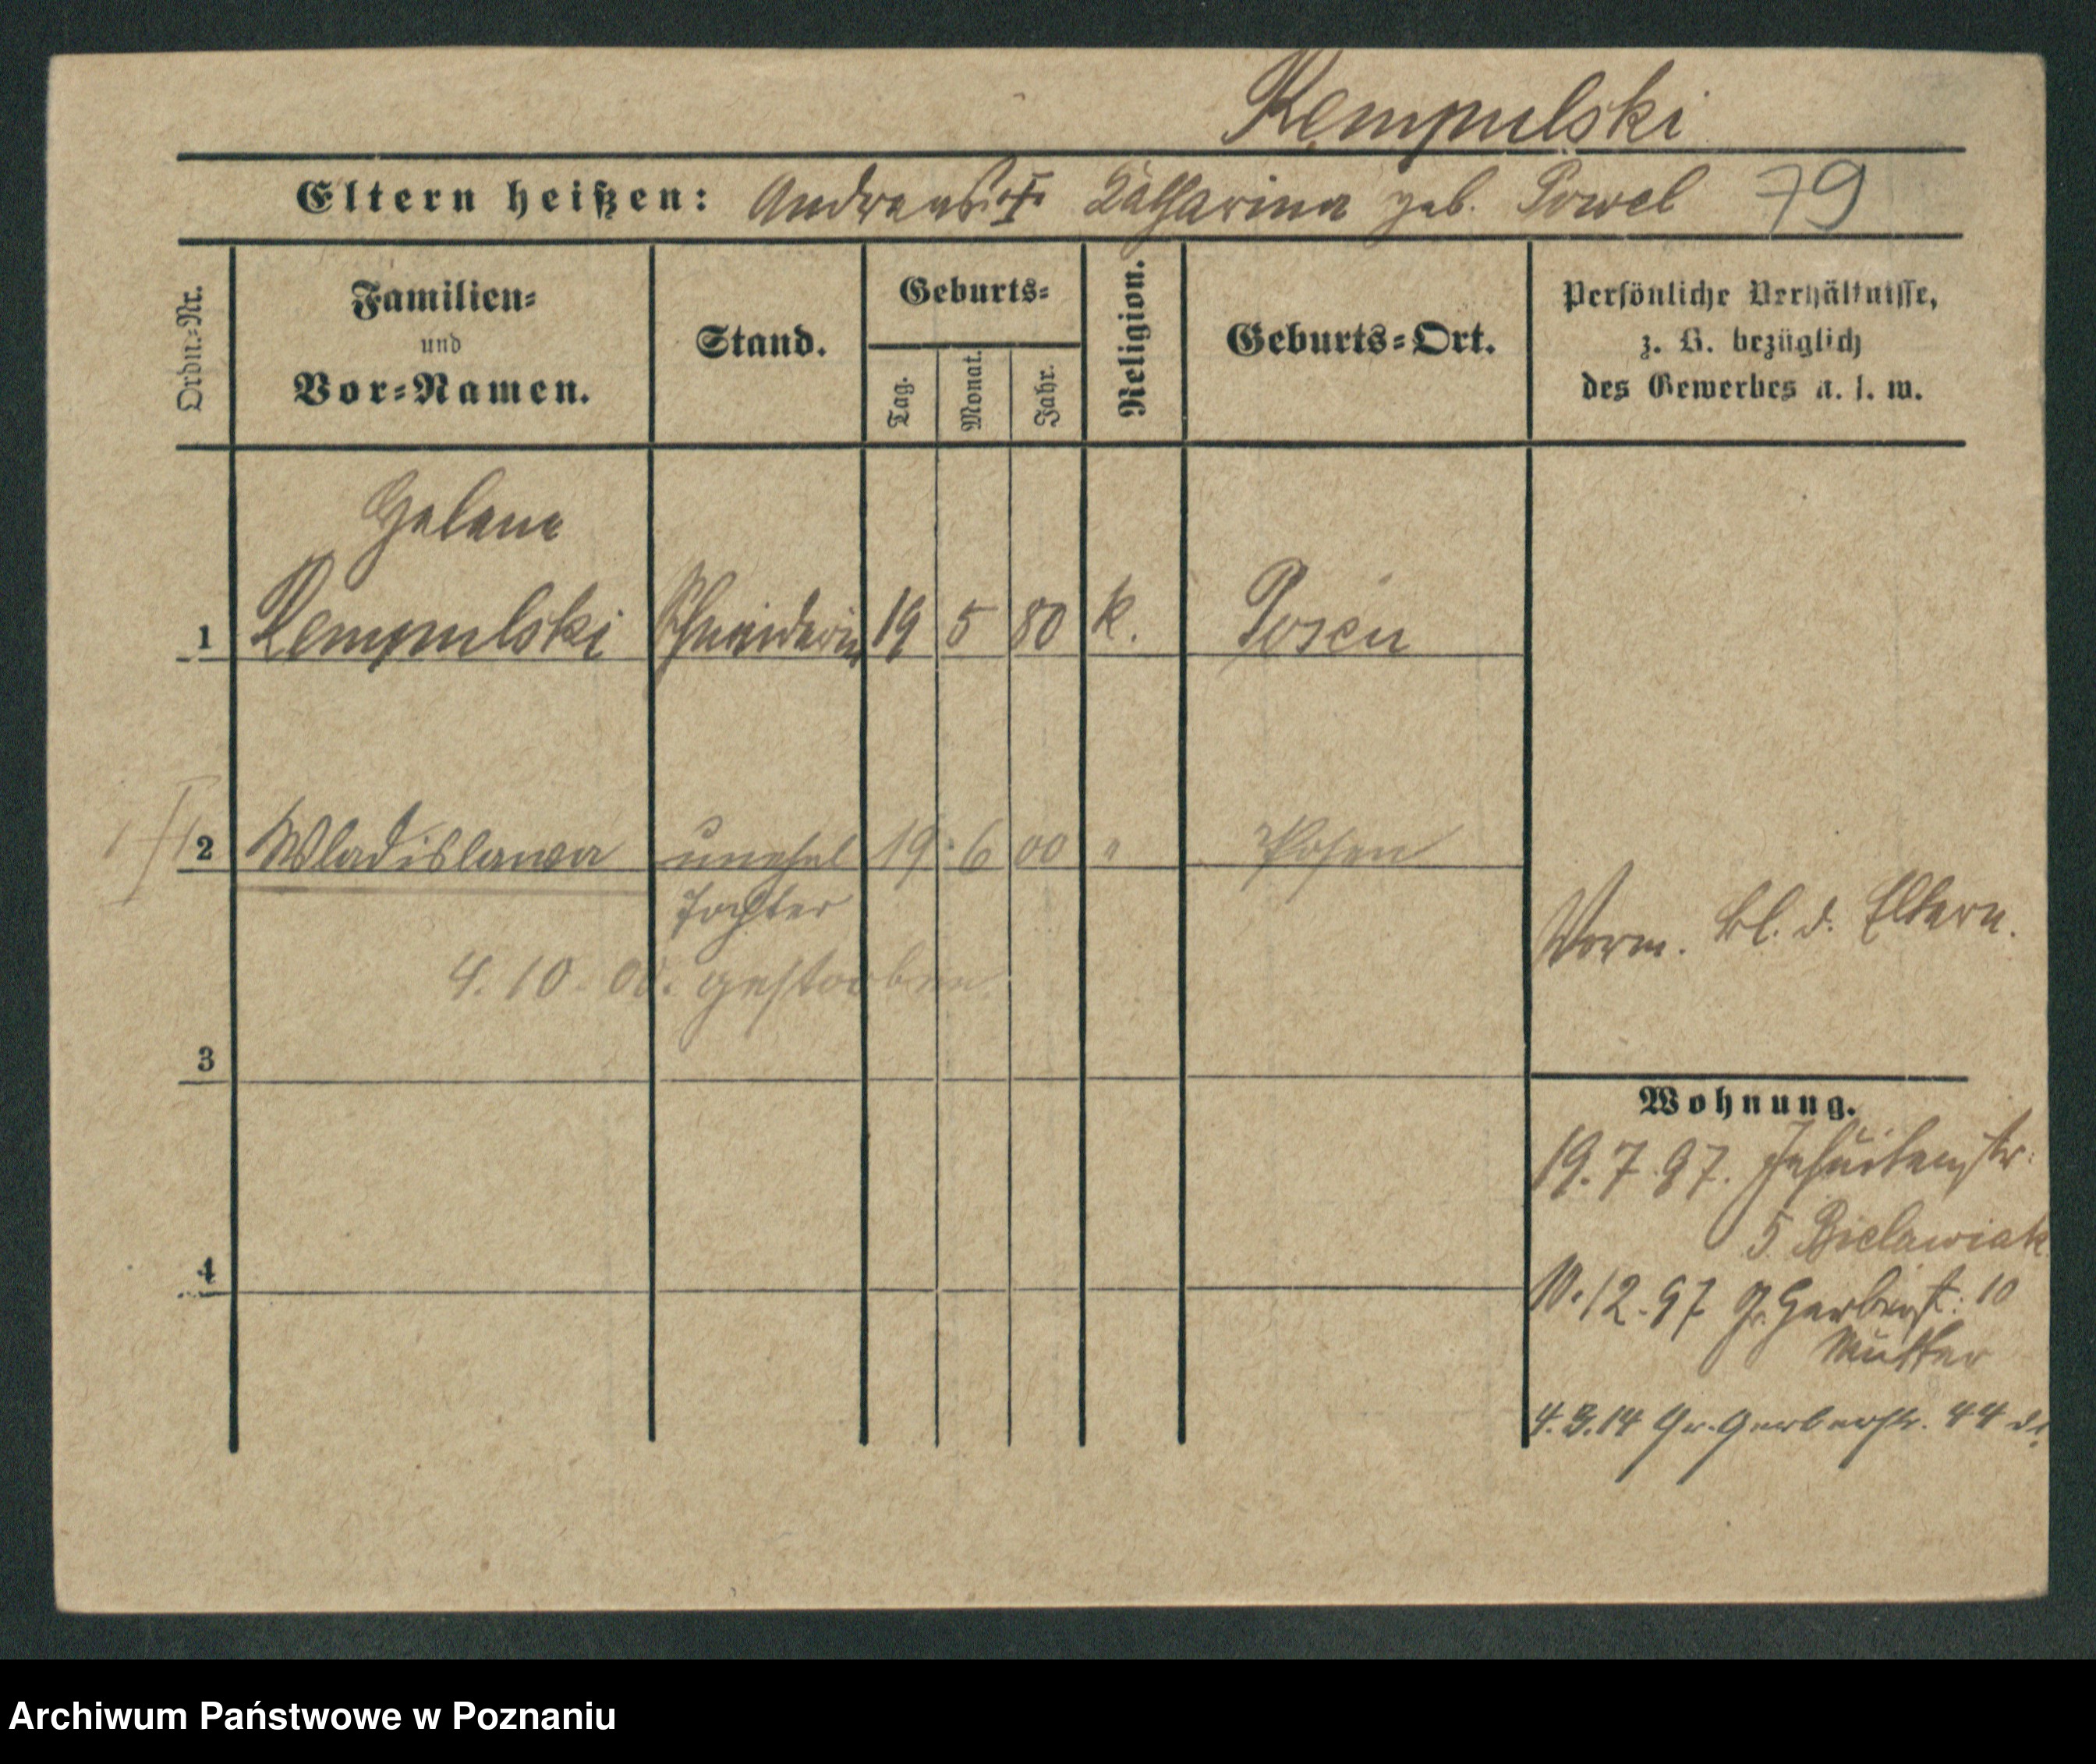 Rempulski
Eltern heißen: Andreas u. Katharina geb. Powel 79
Ordn.-Nr.
Familien-
und
Vor-Namen.
Stand.
Geburts-
Tag.
Monat.
Jahr.
Religion.
Geburts-Ort.
Persönliche Verhältnisse,
z. B. bezüglich
des Gewerbes u. s. w.
Helene
1 Rempulski Schneiderin 19 5 80 k. Posen
2 Wladislawa unehel 19. 6 00 " Posen
Tochter
4. 10. 00. gestorben.
Verm. Bl. d. Eltern.
3
Wohnung.
19. 7. 97. Jesuitenstr.
5 Bielawiak
4
10. 12. 97 Gr. Gerberst. 10
Mutter
4. 3. 14 Gr. Gerberstr. 44
Archiwum Państwowe w Poznaniu